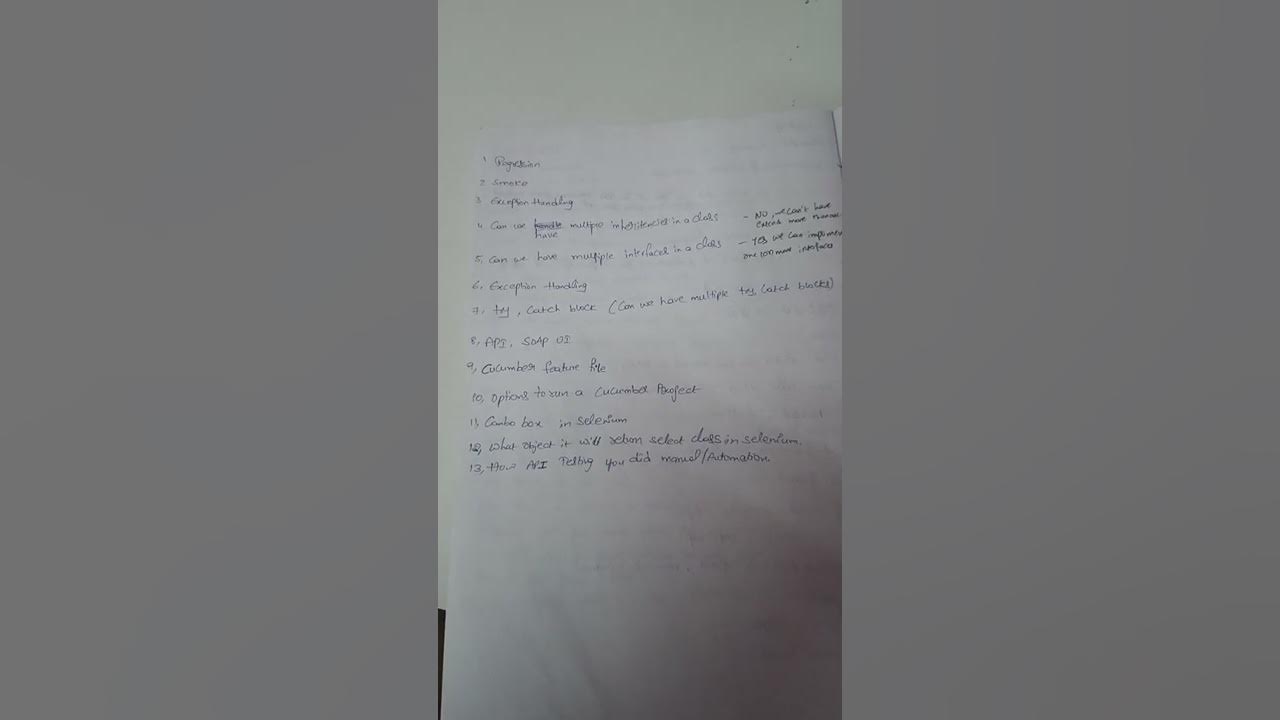 1 Regression
2 Smoke
3 Exception Handling
4 Can we have multiple inheritencies in a class - NO, we can't have
extend more than
5, Can we have multiple interfaces in a class - Yes we can implement
one (or) more interfaces
6, Exception Handling
7, try, Catch block (Can we have multiple try, Catch blocks)
8, API, SOAP UI
9, Cucumber feature file
10, Options to run a Cucumber Project
11, Combo box in selenium
12, What object it will return select class in selenium.
13, How API Testing you did manual/Automation.